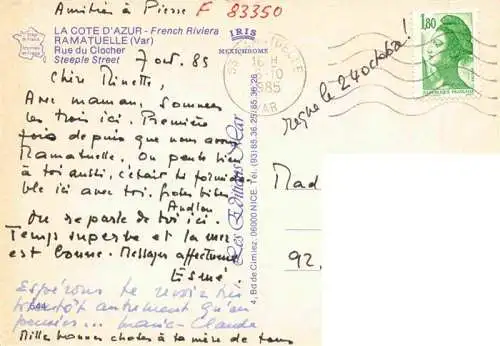 Amitiés à Pierre F 83350
LA COTE D'AZUR - French Riviera
RAMATUELLE (Var)
Rue du Clocher
Steeple Street
IRIS
MEXICHROME
7 oct. 85
Chère Minette,
Avec maman, sommes
les trois ici. Première
fois depuis que nous avons
Ramatuelle. On pense bien
à toi aussi, c'était si formida-
ble ici avec toi.
On reparle de toi ici.
Temps superbe et la mer
est bonne. Messages affectueux
Esmé.
Espérons te revoir très
bientôt autrement qu'en
pensées... Marie-Claude
Mille bonnes choses à ta mère de tous
Les Editions Mar
4, Bd de Cimiez, 06000 NICE. Tél. (93) 85.36.25/85.36.26
16 H
-10
1985
VAR
reçue le 24 octobre!
1,80
REPUBLIQUE FRANÇAISE
Mad
92.